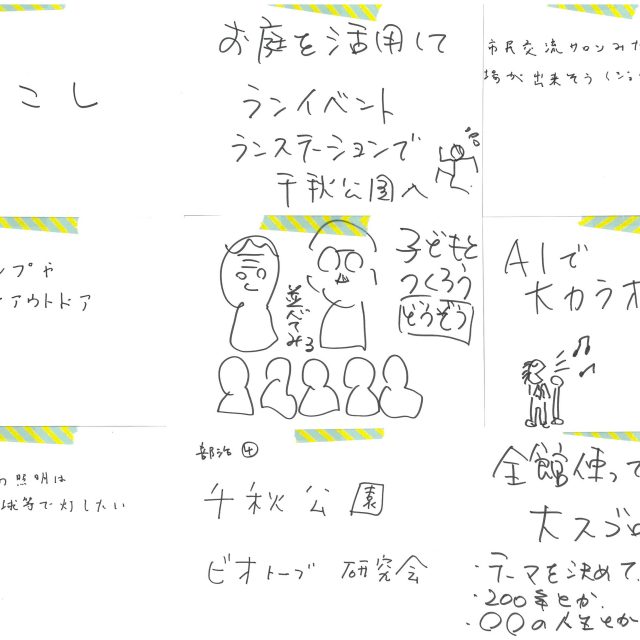 こし
お庭を活用して
ランイベント
ランステーションで
千秋公園へ
市民交流サロンみた
場が出来そう
ンプや
アウトドア
並べてみる
子どもと
つくろう
どうぞう
AIで
大カラオ
の照明は
球等で灯したい
部活④
千秋公園
ビオトープ 研究会
全館使って
大スゴロ
・テーマを決めて、
・200年とか、
・〇〇の人生とか